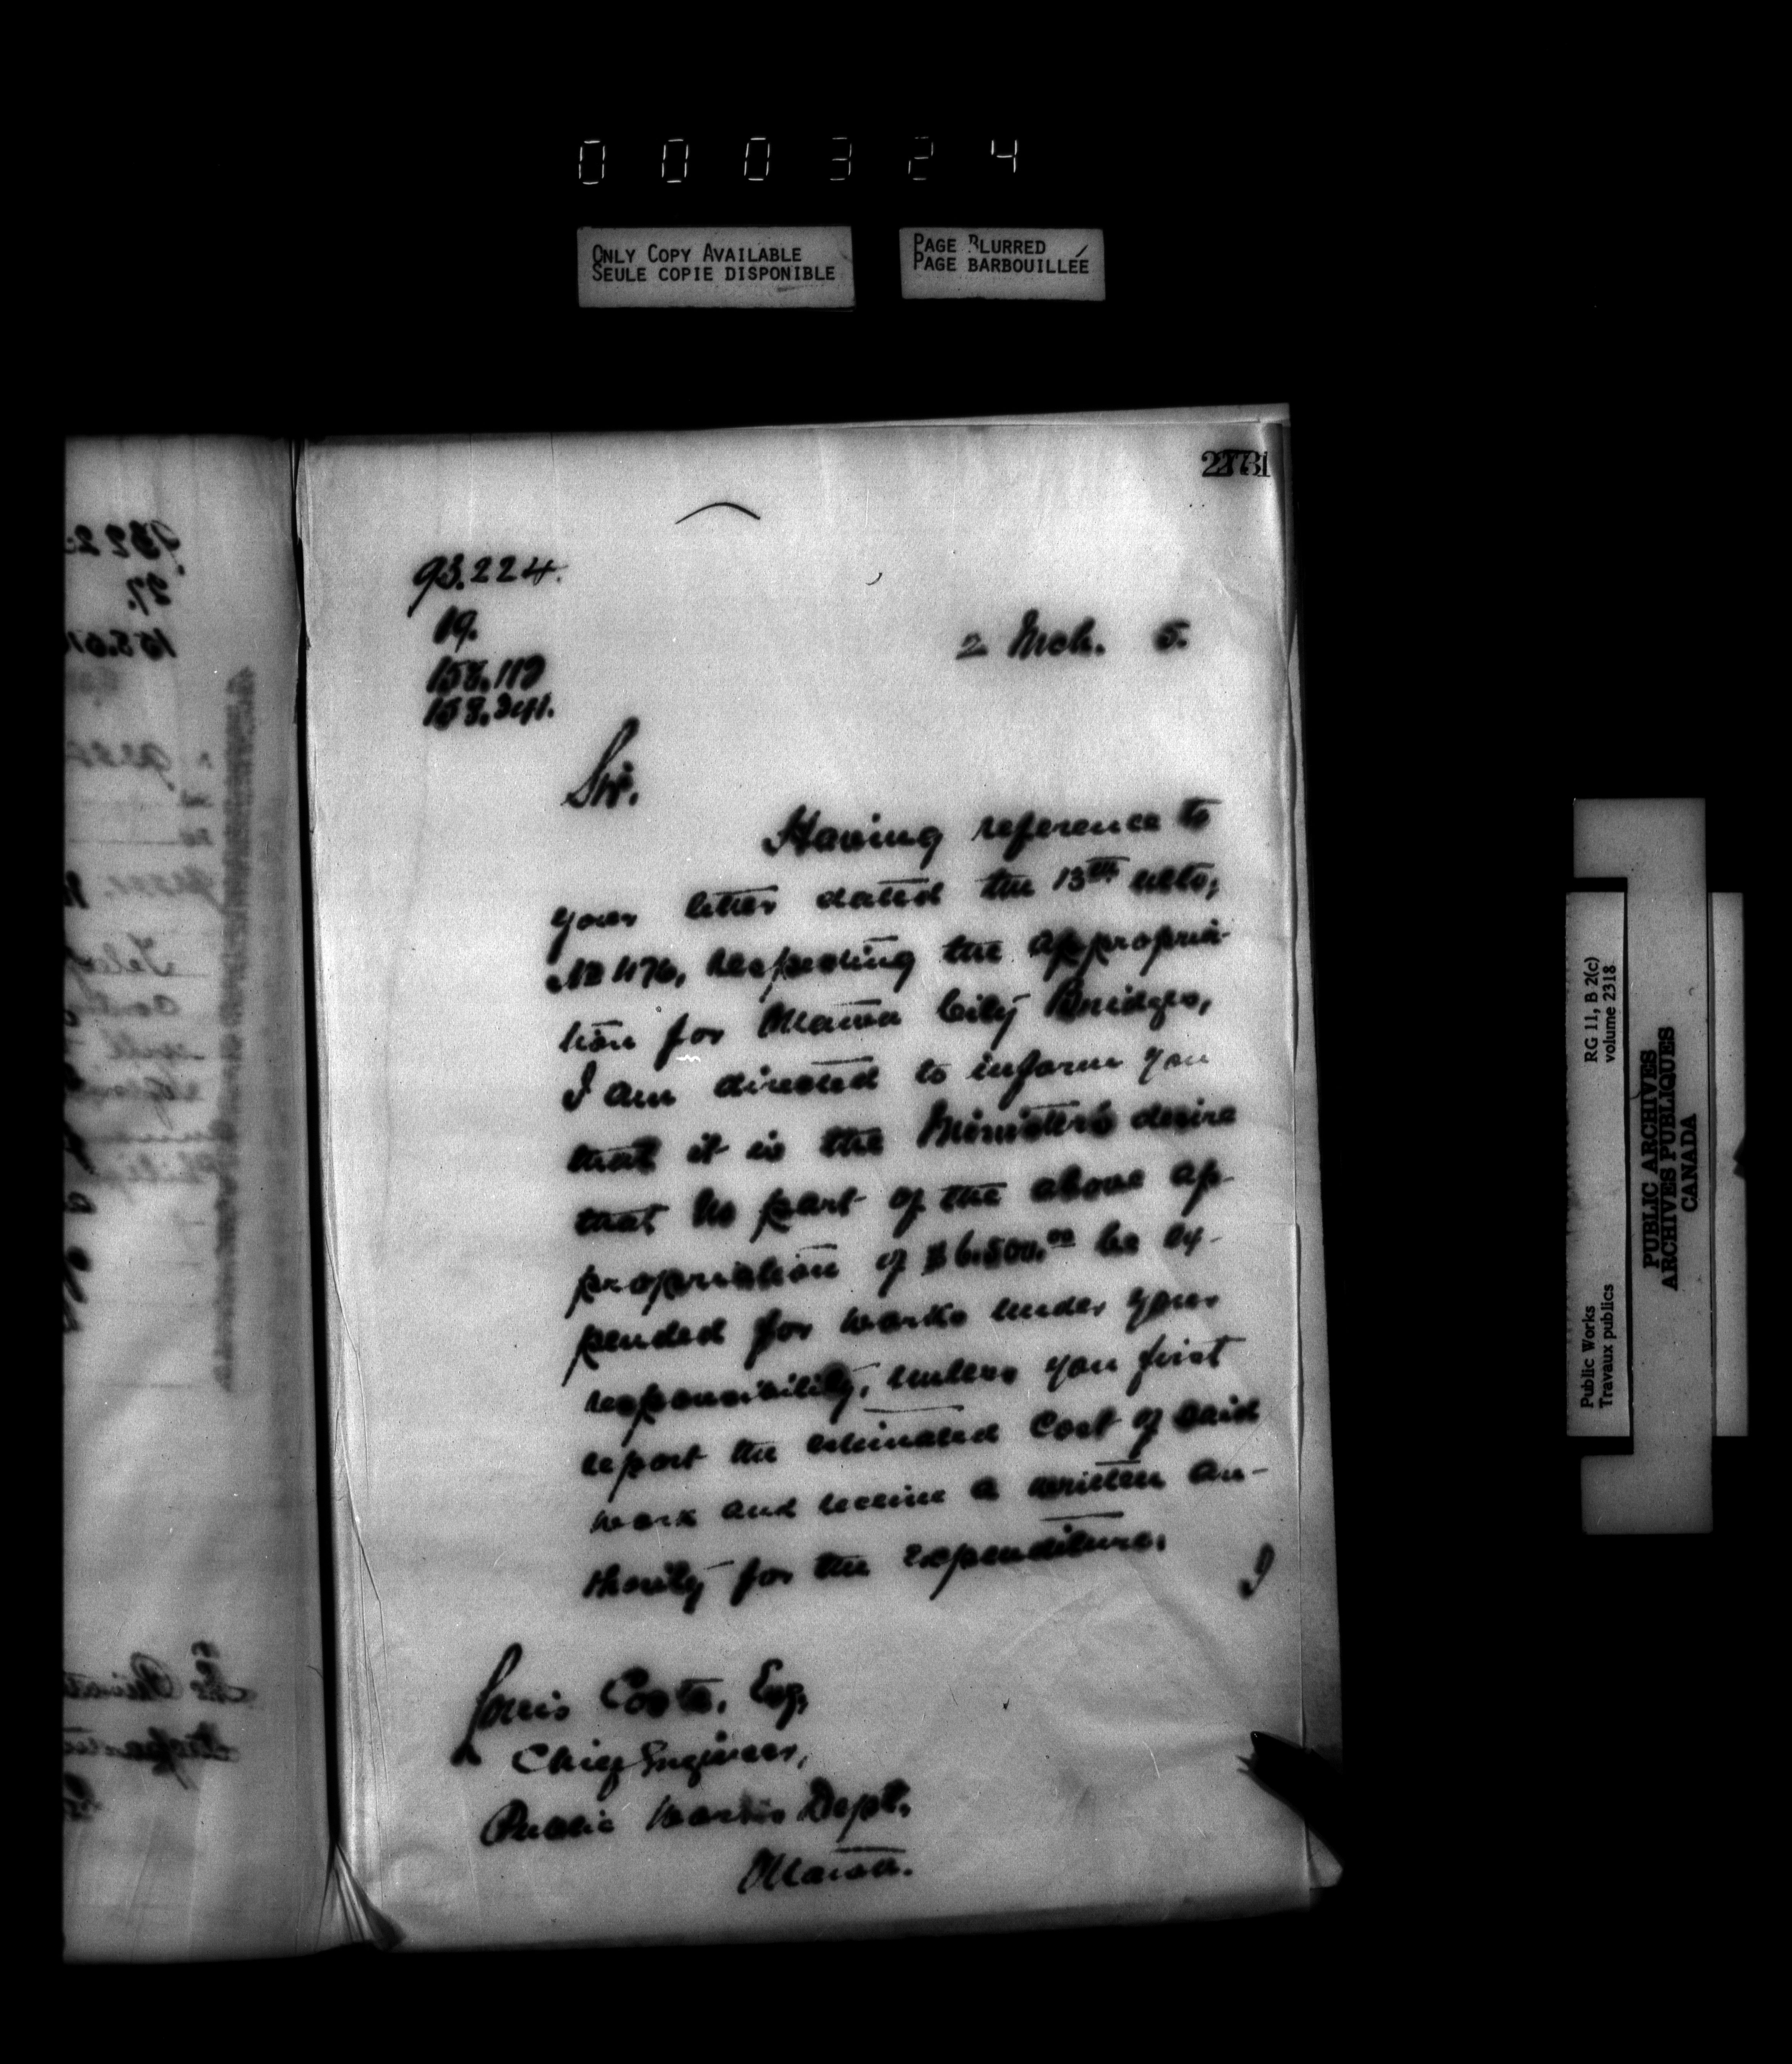 000324
ONLY COPY AVAILABLE
SEULE COPIE DISPONIBLE
PAGE BLURRED
PAGE BARBOUILLÉE
93.224.
19.
2 Mch. 5.
Sir.
Having reference to
your letter dated the 13th ulto,
No 1176, respecting the appropria-
tion for Ottawa City Bridges,
I am directed to inform you
that it is the Minister's desire
that no part of the above ap-
propriation of $6.500.00 be ex-
pended for works under your
responsibility, unless you first
report the estimated cost of said
work and receive a written au-
thority for the expenditure.
I
Louis Coste, Esq,
Chief Engineer,
Public Works Dept.
Ottawa.
Public Works
Travaux publics
RG 11, B 2(c)
volume 2318
PUBLIC ARCHIVES
ARCHIVES PUBLIQUES
CANADA